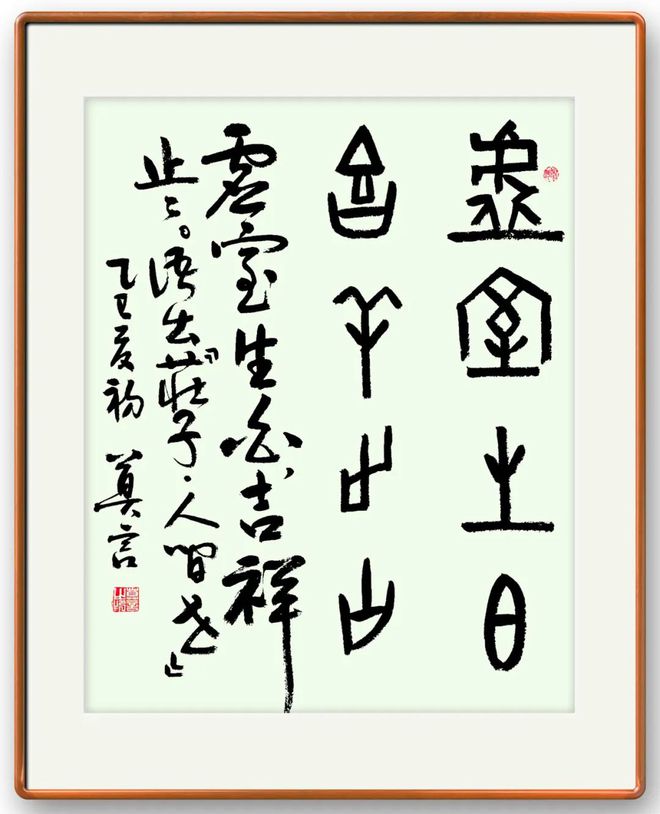 虚室生白
吉羊止止
虚室生白、吉祥
止々。语出『莊子·人間世』
乙巳夏初 莫言